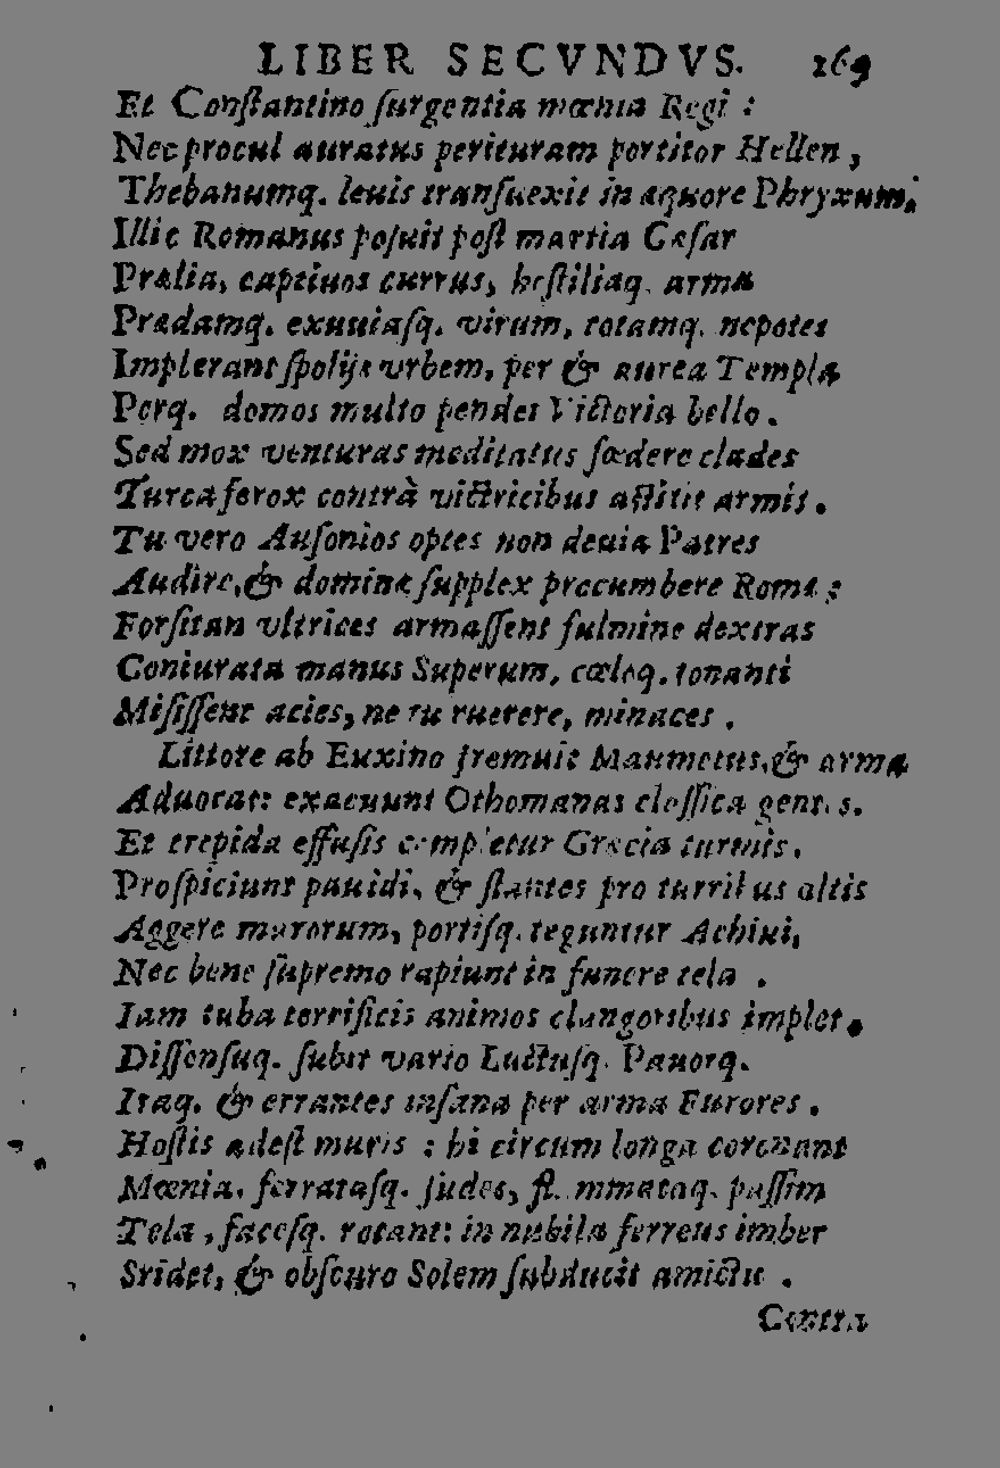 LIBER SECVNDVS. 269
Et Conſtantino ſurgentia mœnia Regi :
Nec procul auratus perituram portitor Hellen ,
Thebanumq. leuis tranſuexit in æquore Phryxum.
Illic Romanus poſuit poſt martia Cæſar
Prælia, captiuos currus, hoſtiliaq. arma
Prædamq. exuuiaſq. virum, totamq. nepotes
Implerant ſpolijs vrbem, per & aurea Templa
Perq. domos multo pendet Victoria bello .
Sed mox venturas meditatus fœdere clades
Turca ferox contrà victricibus aſtitit armis .
Tu vero Auſonios optes non deuia Patres
Audire, & dominæ ſupplex procumbere Romæ ;
Forſitan vltrices armaſſent fulmine dextras
Coniurata manus Superum, cœloq. tonanti
Miſiſſent acies, ne tu ruerere, minaces .
Littore ab Euxino fremuit Maumettus, & arma
Aduocat: exacuunt Othomanas claſſica gentes.
Et trepida effuſis completur Græcia turmis .
Proſpiciunt pauidi, & ſtantes pro turribus altis
Aggere murorum, portiſq. teguntur Achiui,
Nec bene ſupremo rapiunt in funere tela .
Iam tuba terrificis animos clangoribus implet .
Diſſenſuq. ſubit vario Luctuſq. Pauorq.
Iraq. & errantes inſana per arma Furores .
Hoſtis adeſt muris : hi circum longa coronant
Mœnia, ferrataſq. ſudes, flammataq. paſſim
Tela , faceſq. rotant: in nubila ferreus imber
Sridet, & obſcuro Solem ſubducit amictu .
Contra